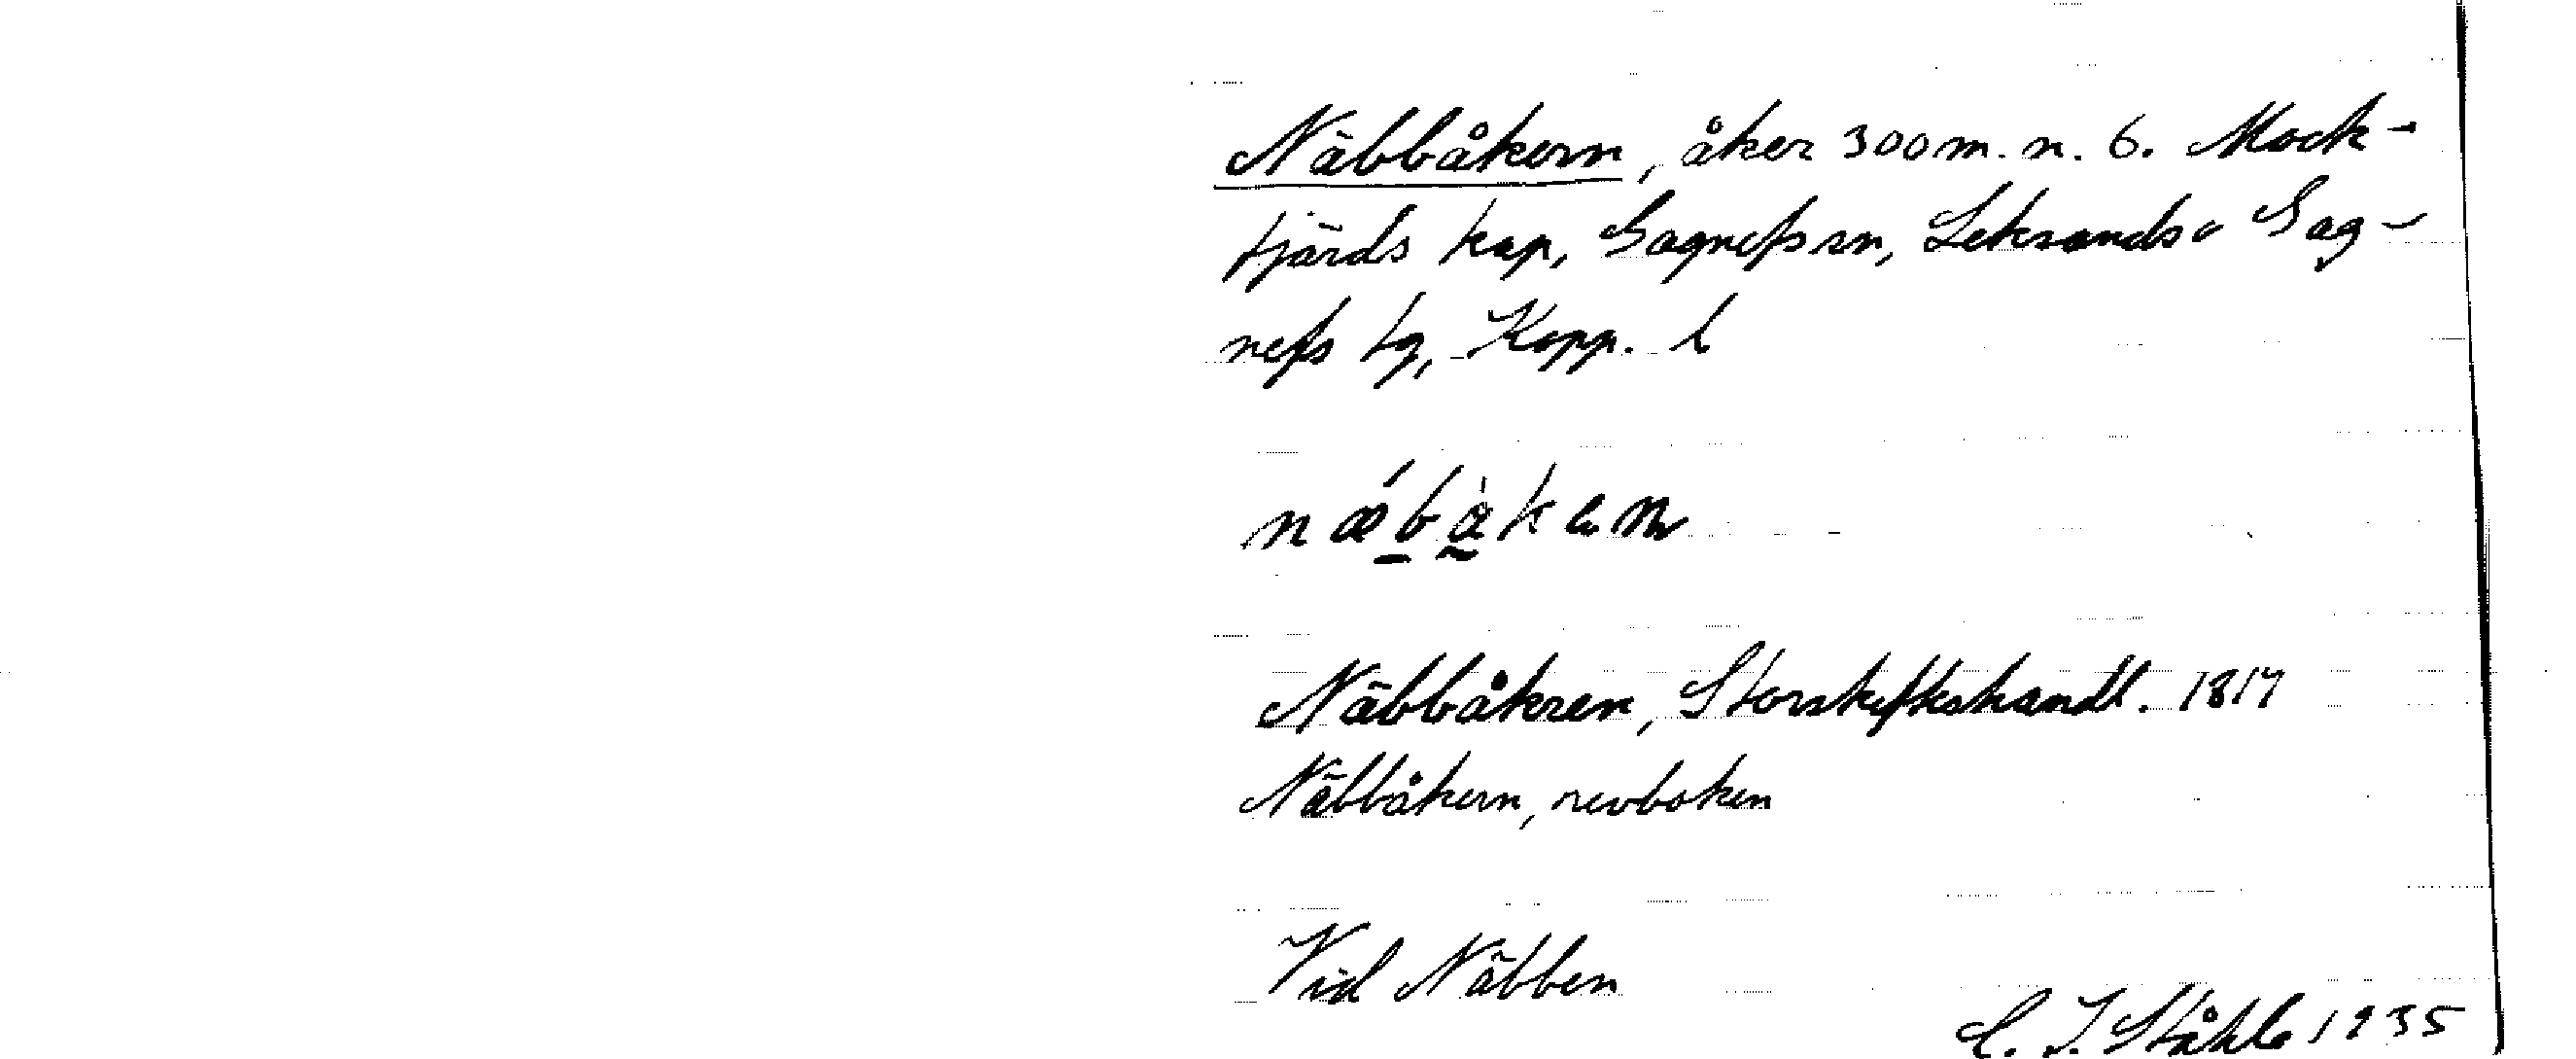 Näbbåkern, åker 300 m. n. 6. Mock-
fjärds kap, Gagnefs sn, Leksands o Gag-
nefs tg, Kopp. l
Näbbåkren, Storskifteshandl. 1817
Näbbåkern, revboken
Vid Näbben
C. I. Ståhle 1935